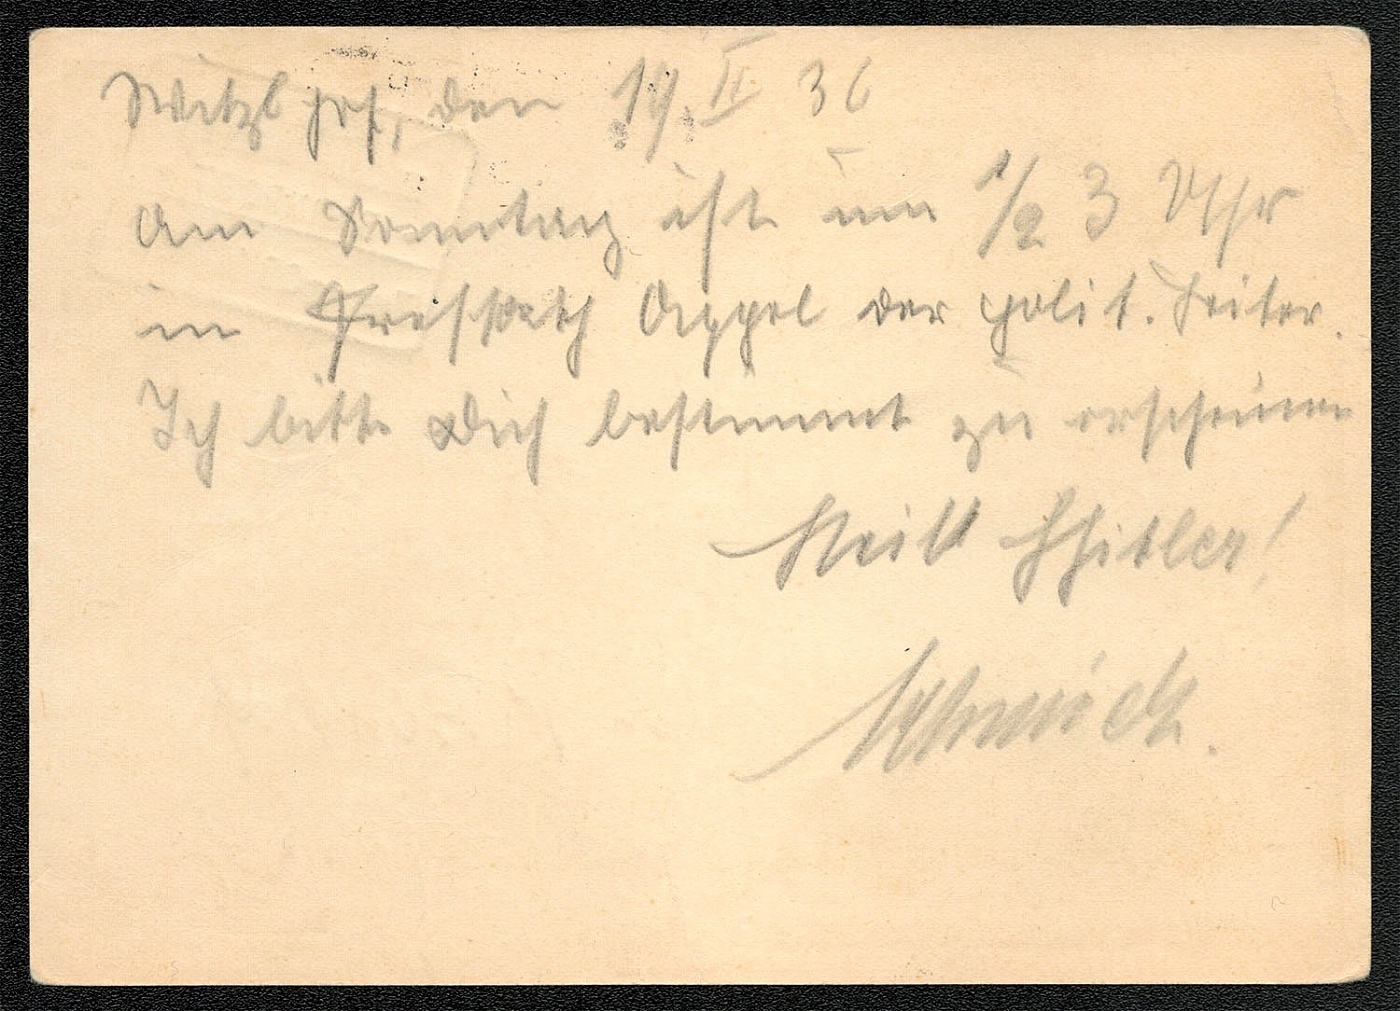 den 19. II 36
Am Sonntag ist um 1/2 3 Uhr
in Pressath Appel der polit. Leiter.
Ich bitte Dich bestimmt zu erscheinen
Heil Hitler!